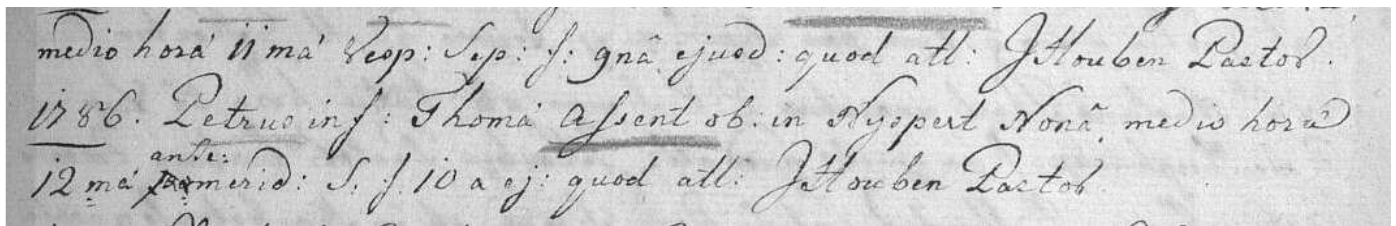 medio horá 11 má Vesp: Sep: f: 9nã ejusd: quod att: JHouben Pastor.
1786. Petrus inf: Thomá Assent ob: in Nyspert Nonã medio horá
ante:
12 má merid: S. f. 10 a ej: quod att: JHouben Pastor